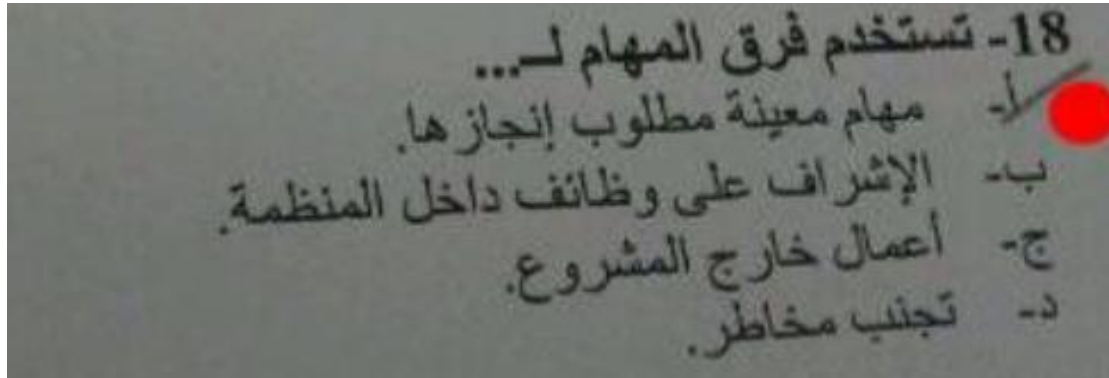 18- تستخدم فرق المهام لــ...
أ- مهام معينة مطلوب إنجازها.
ب- الإشراف على وظائف داخل المنظمة.
ج- أعمال خارج المشروع.
د- تجنب مخاطر.